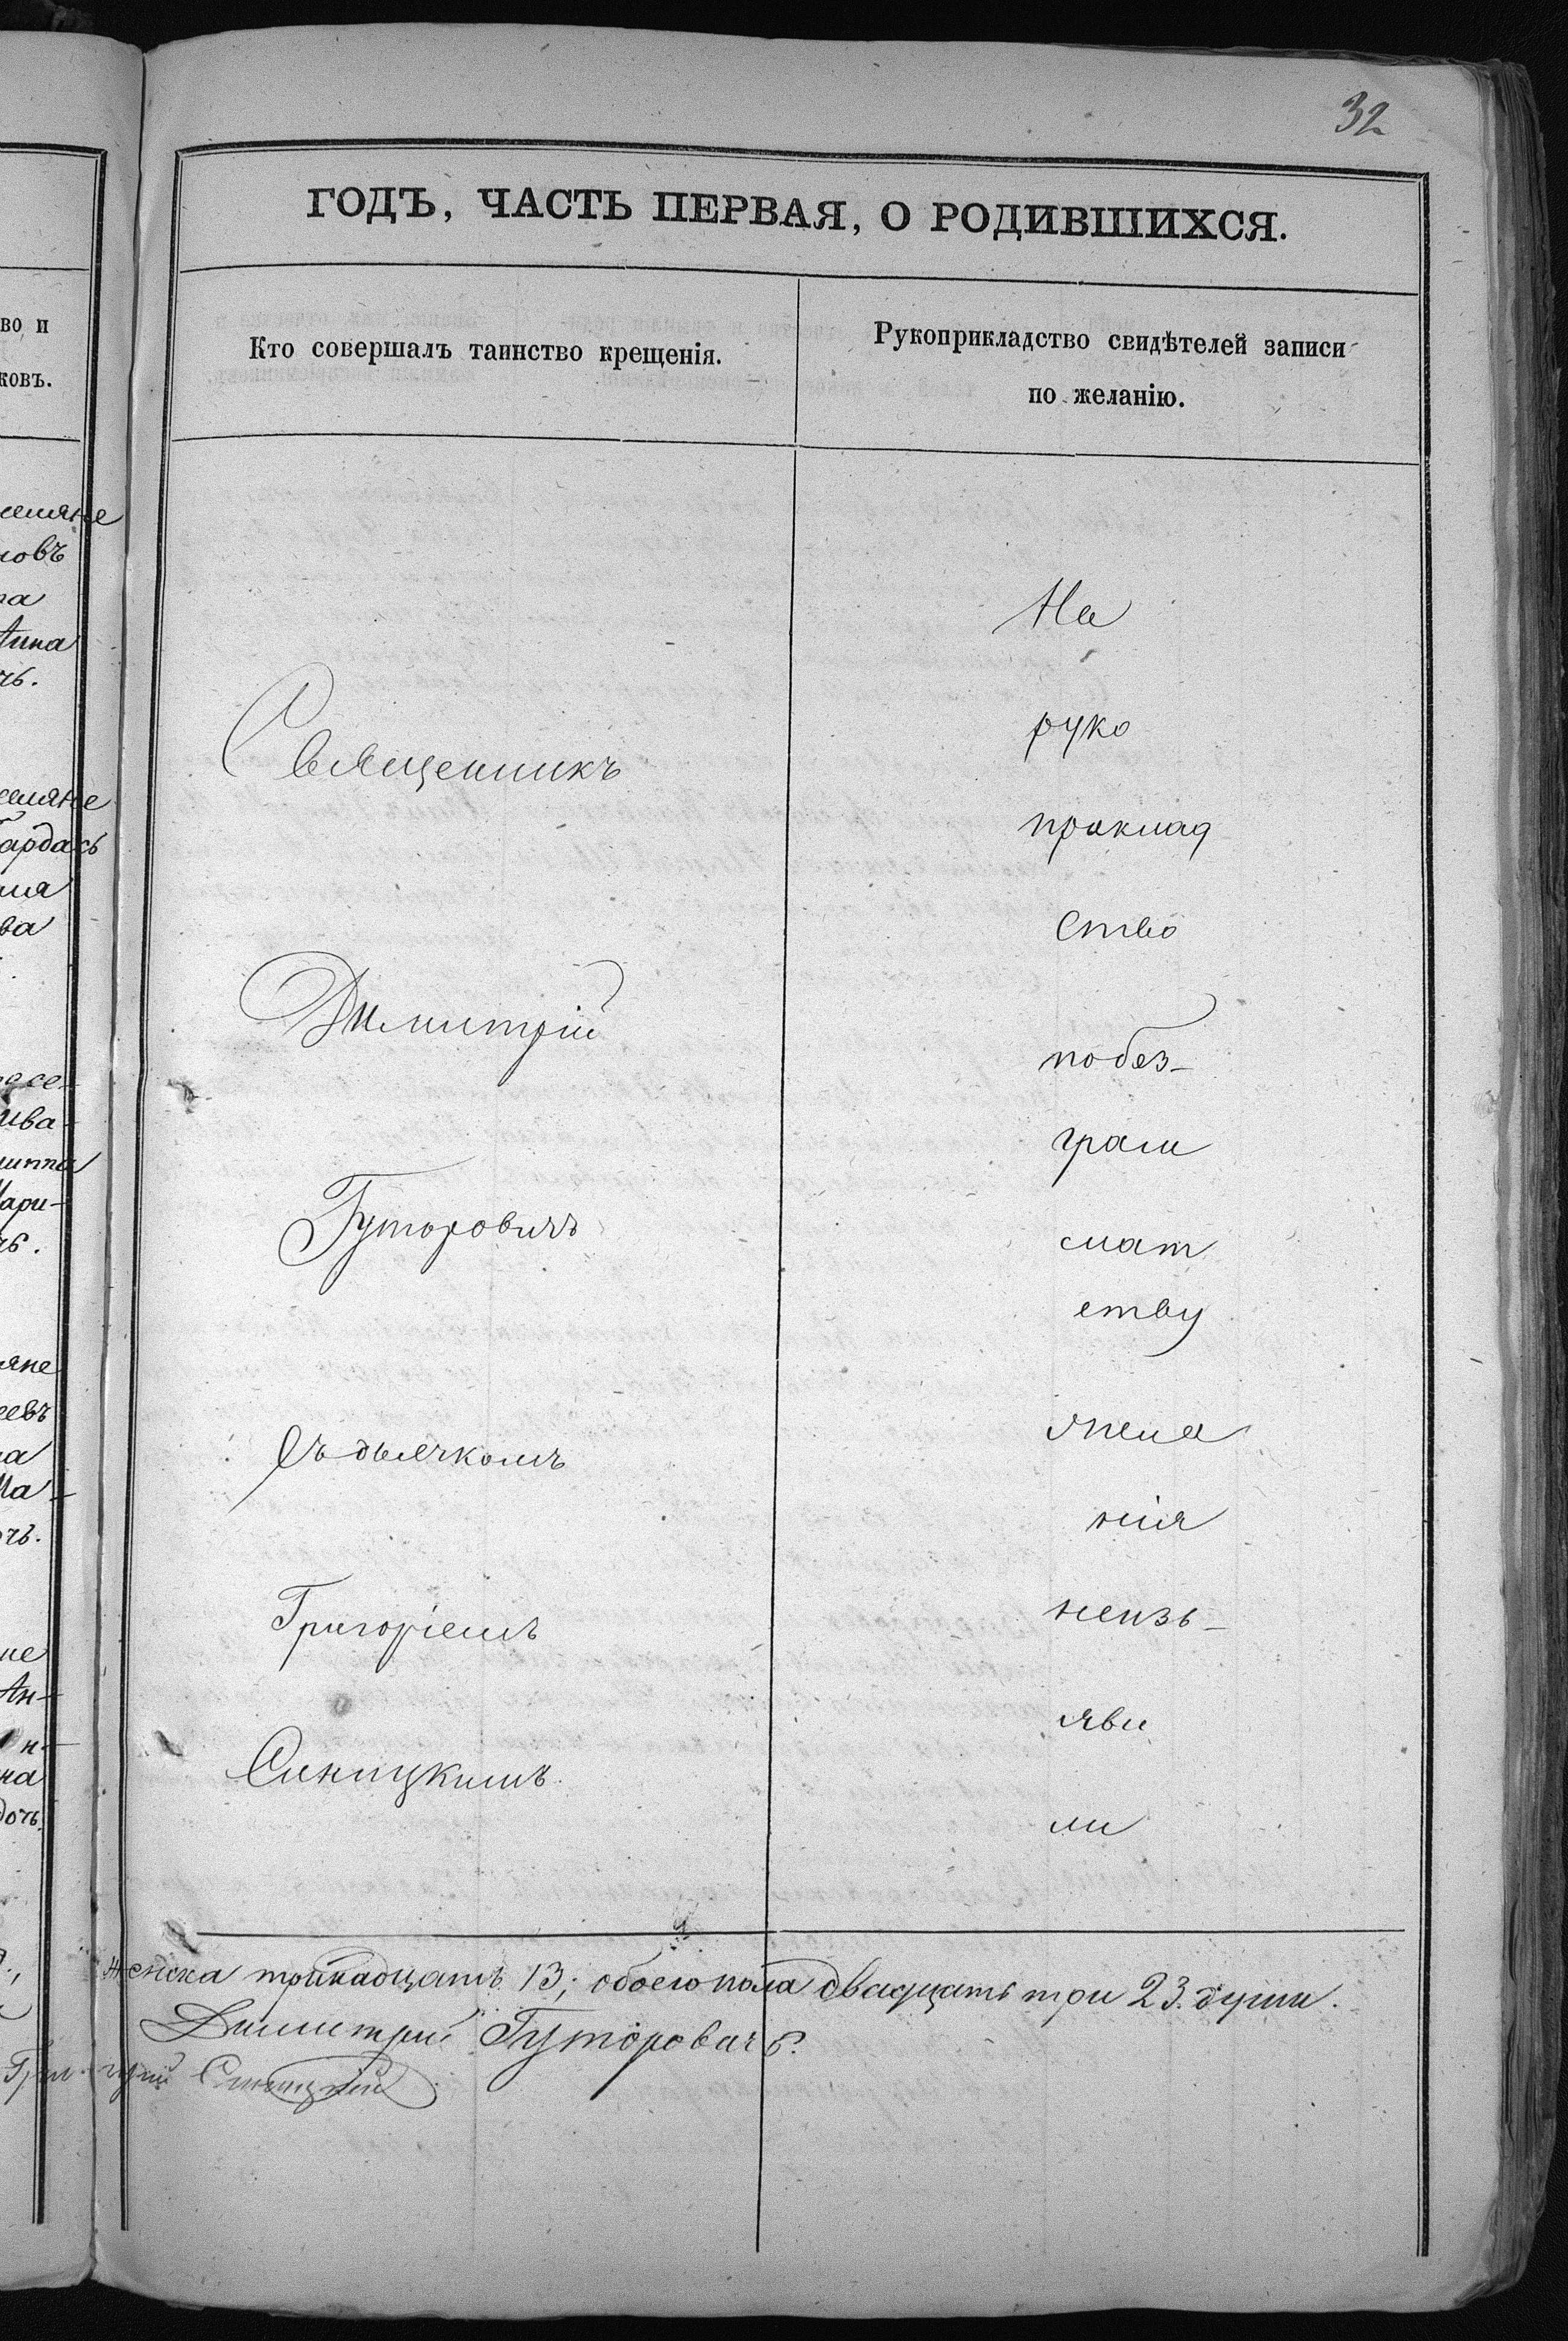 32
ГОДЪ, ЧАСТЬ ПЕРВАЯ, О РОДИВШИХСЯ.
во и
ковъ.
Кто совершалъ таинство крещенія.
Рукоприкладство свидѣтелей записи
по желанію.
новъ
Анна
чь.
Священникъ
Димитрій
Гуторовичъ
Съ дьячкомъ
Григоріемъ
Синицкимъ
На
руко
приклад
ство
по без-
грам
мат
ству
жела
нія
не изъ-
яви
ли
ва
ива-
Мари-
чь.
яне
еевъ
на
Ма-
очь.
не
Ан-
на
дочь.
женска тринадцать 13; обоего пола двадцать три 23. души.
Димитрій Гуторовичъ.
Григорій Синицкій